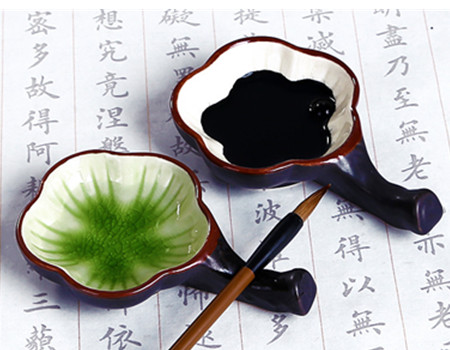 明盡乃至無老亦無
滅無得以無
提波多
礙無罣故怖
想究竟涅槃依
密多故得阿耨三藐